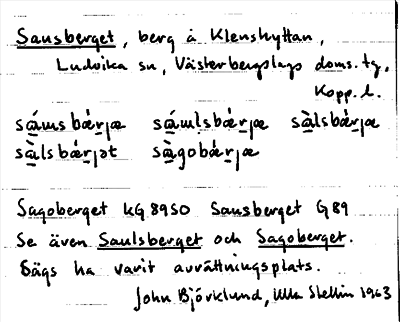 Sausberget, berg å Klenshyttan,
Ludvika sn, Västerbergslags doms. tg,
Kopp. l.
sá̱msbæ̀rjæ sá̱mlsbæ̀rjæ sà̱lsbæ̀rjæ
sà̱lsbæ̀rjət sà̱gobæ̀rjæ
Sagoberget KG 8950 Sausberget G 89
Se även Saulsberget och Sagoberget.
Sägs ha varit avrättningsplats.
John Björklund, Ulla Stellin 1963